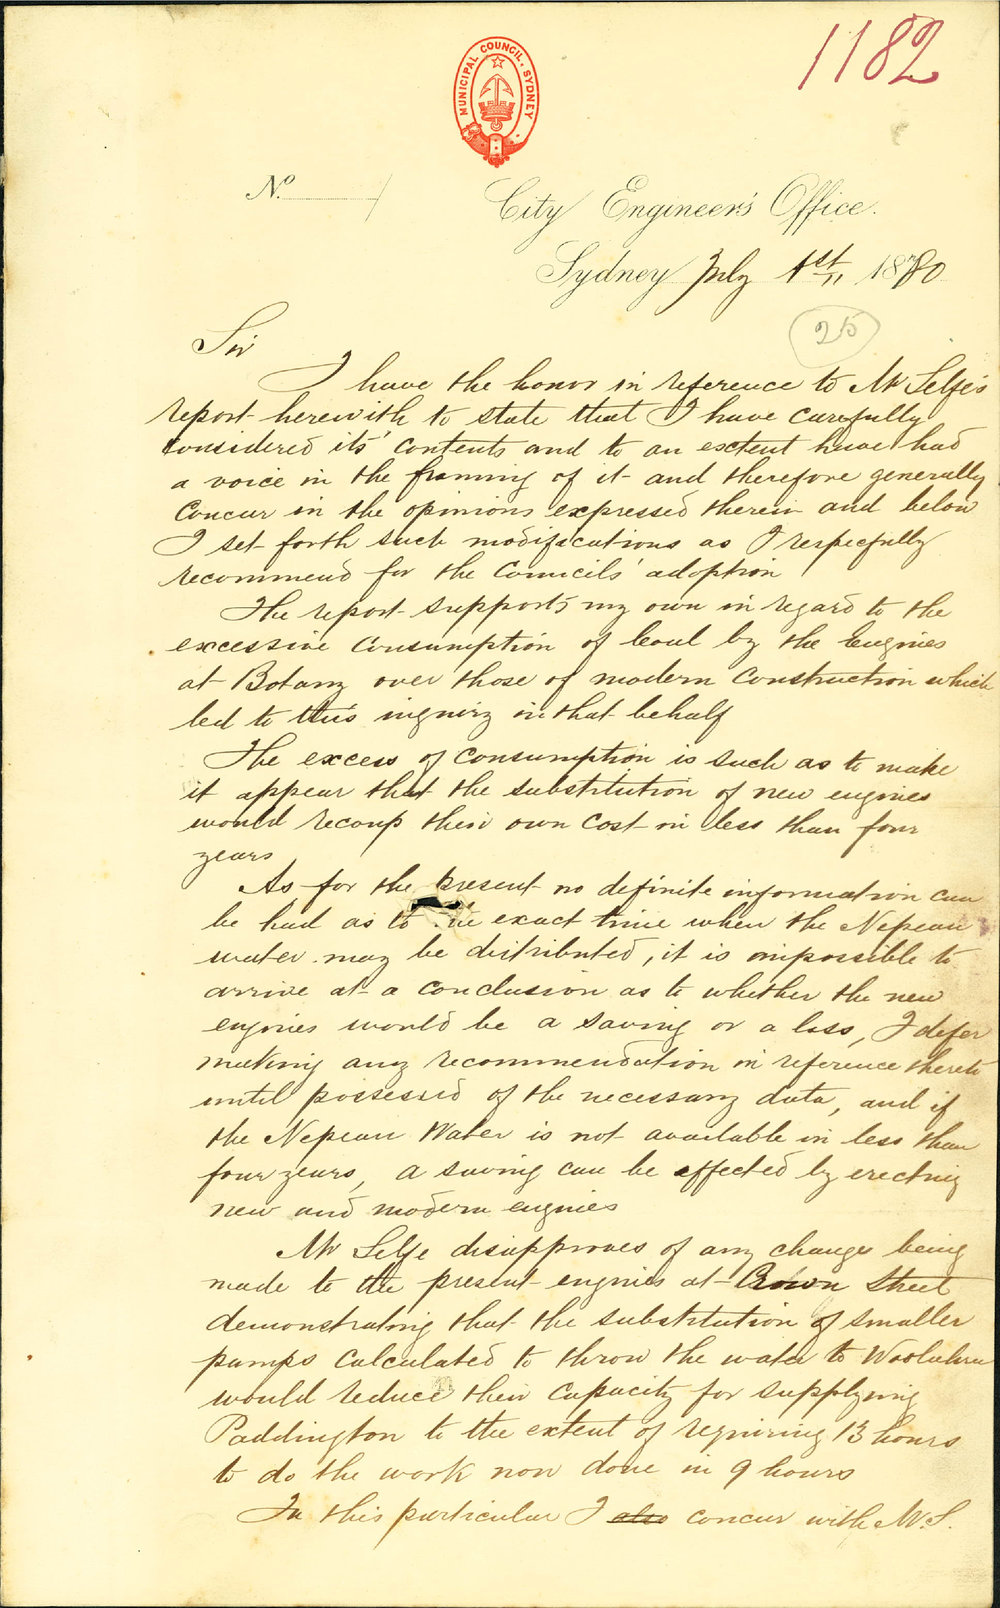 1182
MUNICIPAL COUNCIL. SYDNEY
No.
City Engineer's Office.
Sydney July 1st 1880
25
Sir
I have the honor in reference to Mr Selfe's
report herewith to state that I have carefully
considered its' contents and to an extent have had
a voice in the framing of it and therefore generally
concur in the opinions expressed therein and below
I set forth such modifications as I respecfully
recommend for the Councils' adoption
The report supports my own in regard to the
excessive consumption of Coal by the Engines
at Botany over those of modern Construction which
led to this inquiry in that behalf
The excess of consumption is such as to make
it appear that the substitution of new engines
would recoup their own cost in less than four
years
As for the present no definite information can
be had as to the exact time when the Nepean
water may be distributed, it is impossible to
arrive at a conclusion as to whether the new
engines would be a saving or a loss, I defer
making any recommendation in reference thereto
until possessed of the necessary data, and if
the Nepean Water is not available in less than
four years, a saving can be effected by erecting
new and modern engines
Mr Selfe disapproves of any changes being
made to the present engines at Crown Street
demonstrating that the substitution of smaller
pumps calculated to throw the water to Woolahra
would reduce their capacity for supplying
Paddington to the extent of requiring 13 hours
to do the work now done in 9 hours
In this particular I also concur with Mr. S.